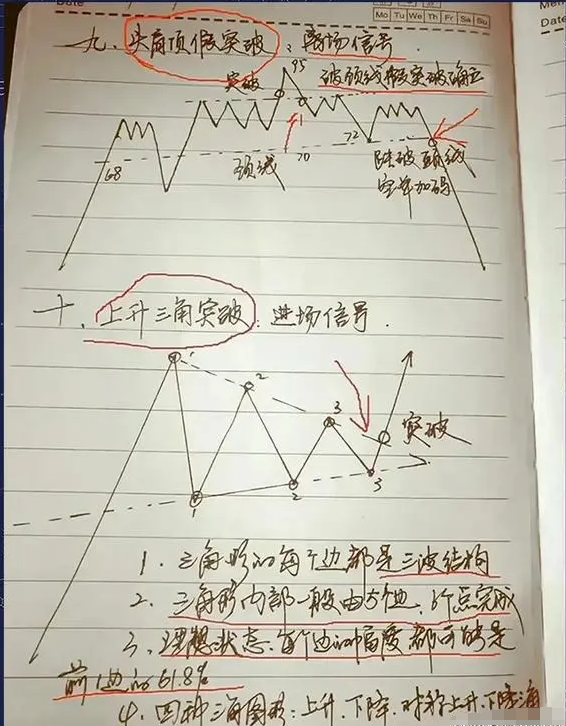 Date
Mo Tu We Th Fr Sa Su
Mem
Date
九、头肩顶假突破：离场信号
突破 95 破颈线假突破确立
68 颈线 70 72 跌破颈线
空单加码
十、上升三角突破：进场信号.
1 2 3 突破
1 2 3
1. 三角形的每个边都是三波结构
2. 三角形内部一般由5个边、6个点完成
3、理想状态、每个边的幅度都可能是
前1边的61.8%
4、四种三角图形：上升、下降、对称上升、下降